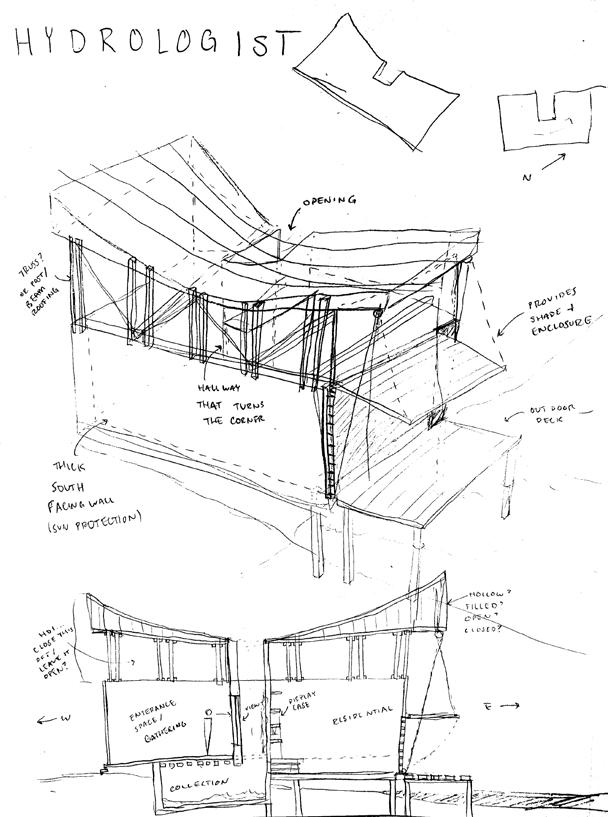 HYDROLOGIST
N
OPENING
TRUSS?
OR POST/
BEAM
ROOFING
PROVIDES
SHADE +
ENCLOSURE
HALLWAY
THAT TURNS
THE CORNER
OUTDOOR
DECK
THICK
SOUTH
FACING WALL
(SUN PROTECTION)
HOLLOW?
FILLED?
OPEN?
CLOSED?
CLOSE THIS
OFF/
LEAVE IT
OPEN?
?
W
ENTERANCE
SPACE/
GATHERING
VIEW
DISPLAY
CASE
RESIDENTIAL
E
COLLECTION